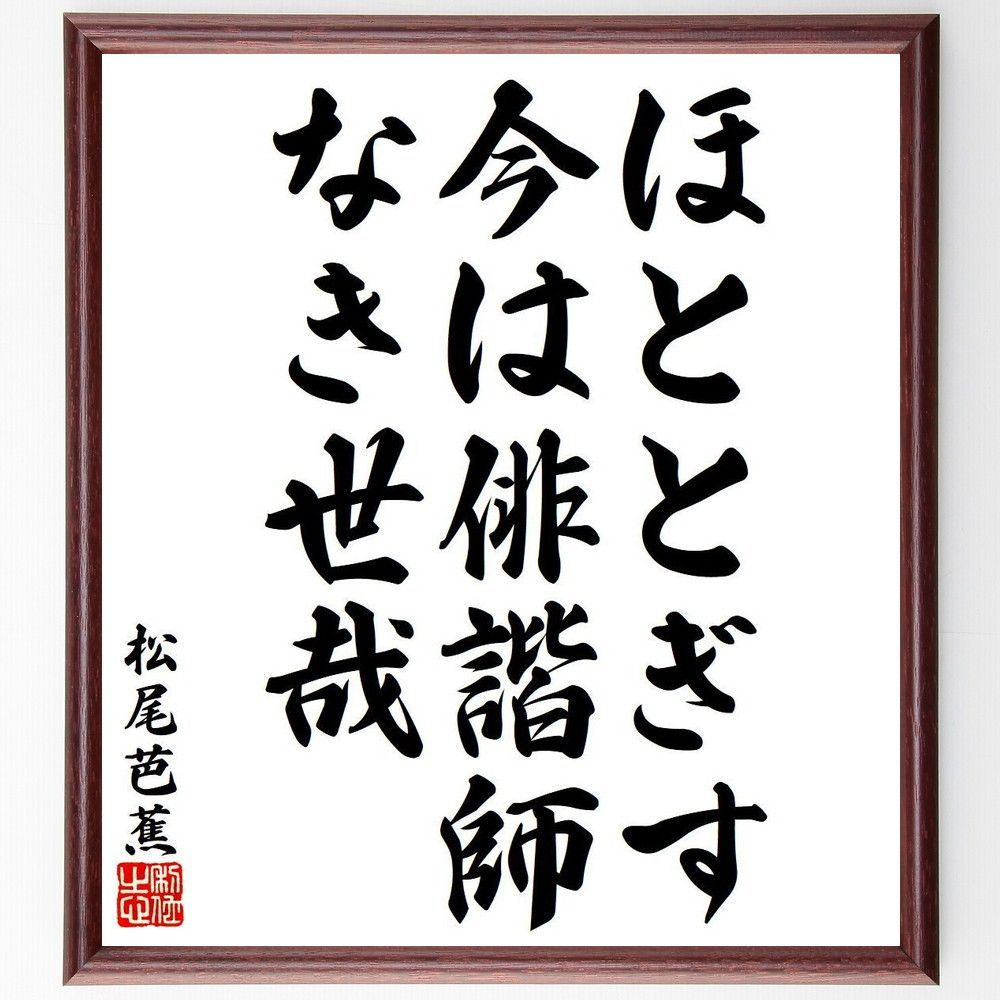 ほととぎす
今は俳諧師
なき世哉
松尾芭蕉